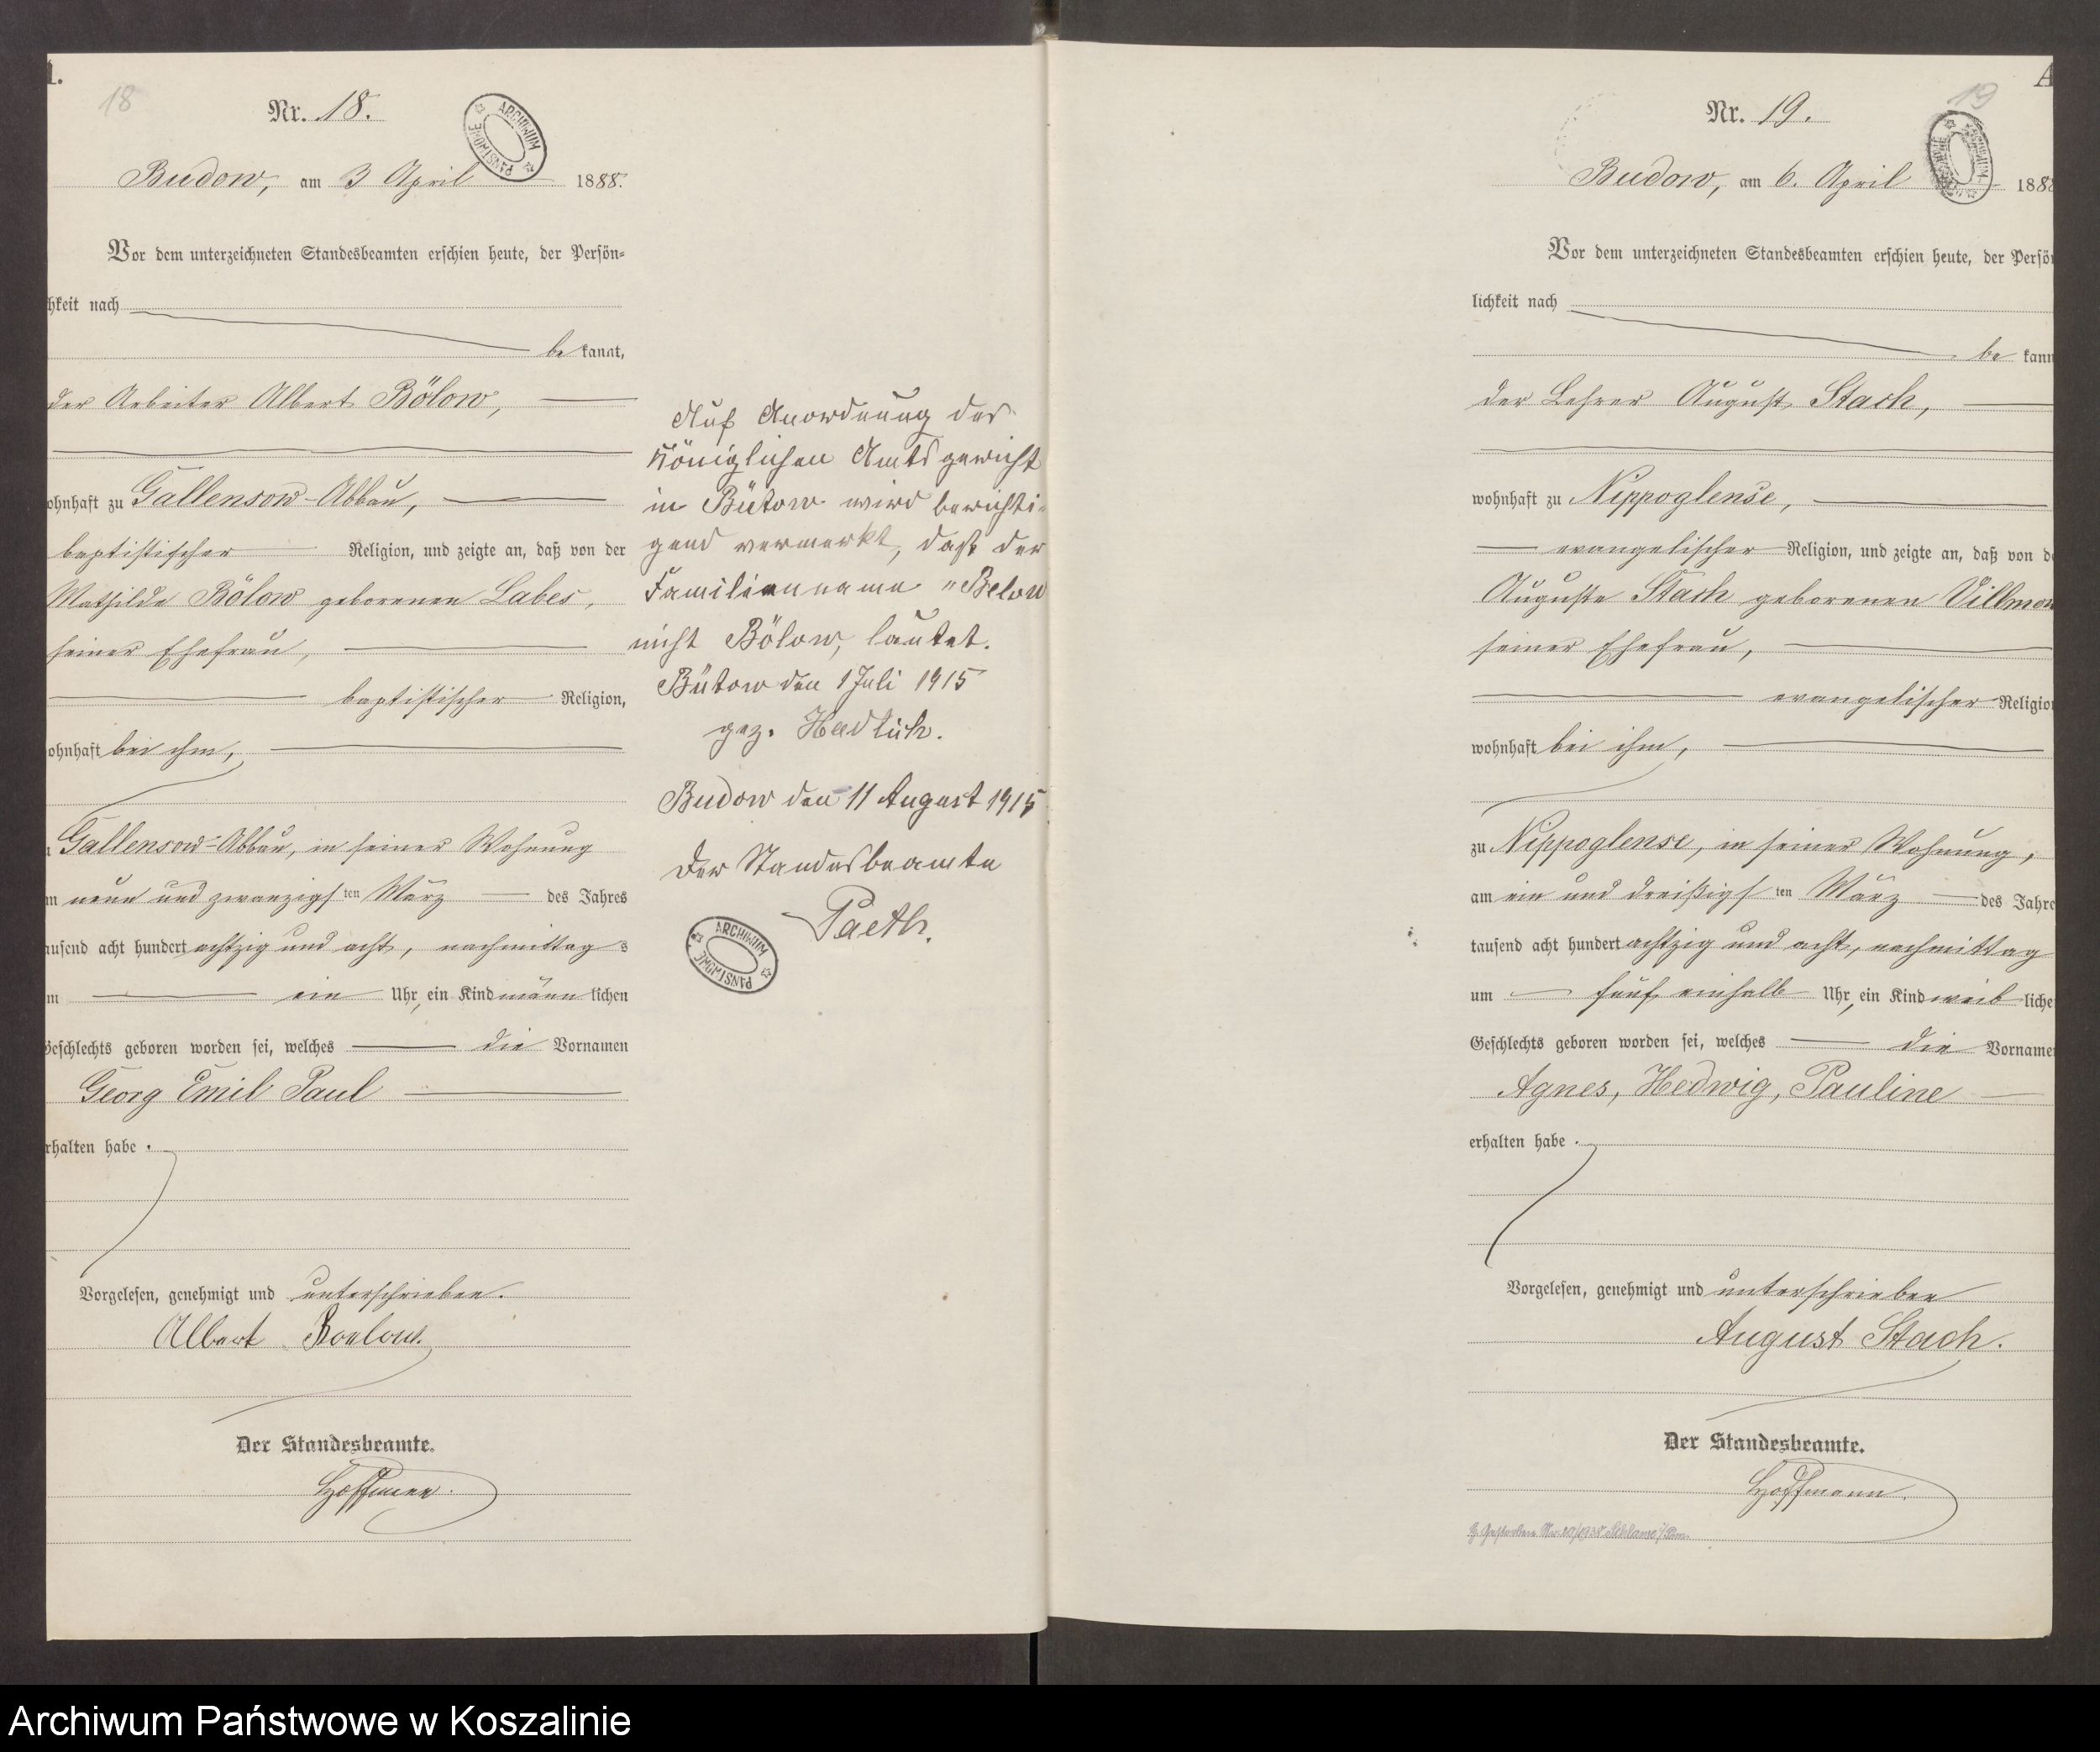 18
Nr. 18.
ARCHIWUM PAŃSTWOWE
Budow, am 3 April 1888.
Vor dem unterzeichneten Standesbeamten erschien heute, der Persön-
hkeit nach
be kannt,
der Arbeiter Albert Bölow,
ohnhaft zu Gallensow-Abbau,
baptistischer Religion, und zeigte an, daß von der
Mathilde Bölow geborenen Labes,
seiner Ehefrau,
baptistischer Religion,
ohnhaft bei ihm,
Gallensow-Abbau, in seiner Wohnung
m neun und zwanzigs ten März des Jahres
ausend acht hundert achtzig und acht, nachmittag s
m ein Uhr, ein Kind männ lichen
Geschlechts geboren worden sei, welches die Vornamen
Georg Emil Paul
rhalten habe.
Vorgelesen, genehmigt und unterschrieben.
Albert Boelow.
Der Standesbeamte.
Hoffmann.
Auf Anordnung des
Königlichen Amtsgericht
in Bütow wird berichti-
gend vermerkt, daß der
Familienname "Below
nicht Bölow, lautet.
Bütow den 1 Juli 1915
gez. Hadlich.
Budow den 11 August 1915
Der Standesbeamte
Paeth.
ARCHIWUM PAŃSTWOWE
A
19
Nr. 19.
ARCHIWUM PAŃSTWOWE
Budow, am 6. April 188
Vor dem unterzeichneten Standesbeamten erschien heute, der Persön
lichkeit nach
be kann
der Lehrer August Stach,
wohnhaft zu Nippoglense,
evangelischer Religion, und zeigte an, daß von de
Auguste Stach geborenen Villmow
seiner Ehefrau,
evangelischer Religion
wohnhaft bei ihm,
zu Nippoglense, in seiner Wohnung,
am ein und dreißigs ten März des Jahre
tausend acht hundert achtzig und acht, nachmittag
um fünf einhalb Uhr, ein Kind weib liche
Geschlechts geboren worden sei, welches die Vorname
Agnes, Hedwig, Pauline
erhalten habe.
Vorgelesen, genehmigt und unterschrieben
August Stach.
Der Standesbeamte.
Hoffmann.
Gestorben Nr. 20/1938 Schlawe i/Pom.
Archiwum Państwowe w Koszalinie